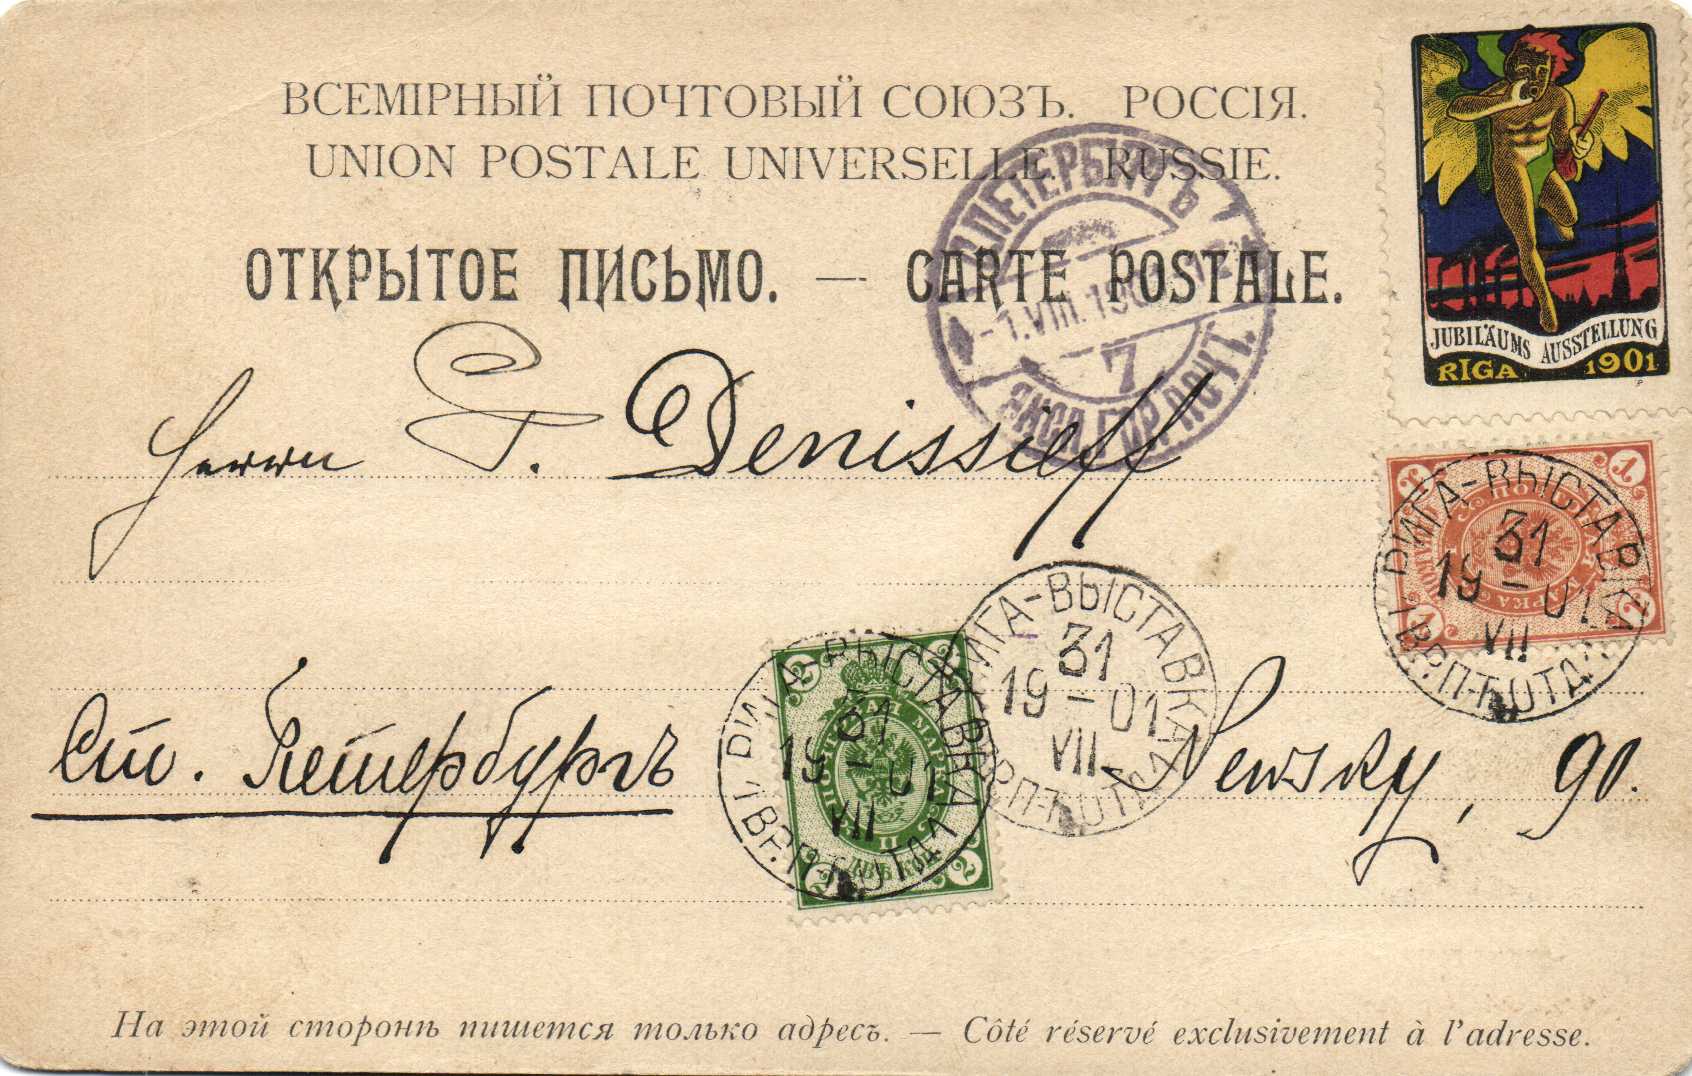 ВСЕМІРНЫЙ ПОЧТОВЫЙ СОЮЗЪ. РОССІЯ.
UNION POSTALE UNIVERSELLE. RUSSIE.
ОТКРЫТОЕ ПИСЬМО. — CARTE POSTALE.
JUBILÄUMS AUSSTELLUNG
RIGA 1901
С.ПЕТЕРБУРГЪ
-1.VIII.1901
7
Herrn G. Denissieff
РИГА-ВЫСТАВКА
31
19-01
VII
РИГА-ВЫСТАВКА
31
19-01
VII
РИГА-ВЫСТАВКА
31
19-01
VII
2
ПОЧТОВАЯ МАРКА
ДВѢ КОП.
1
ПОЧТОВАЯ МАРКА
Ст. Петербургъ
Newsky, 90.
На этой сторонѣ пишется только адресъ. — Côté réservé exclusivement à l'adresse.